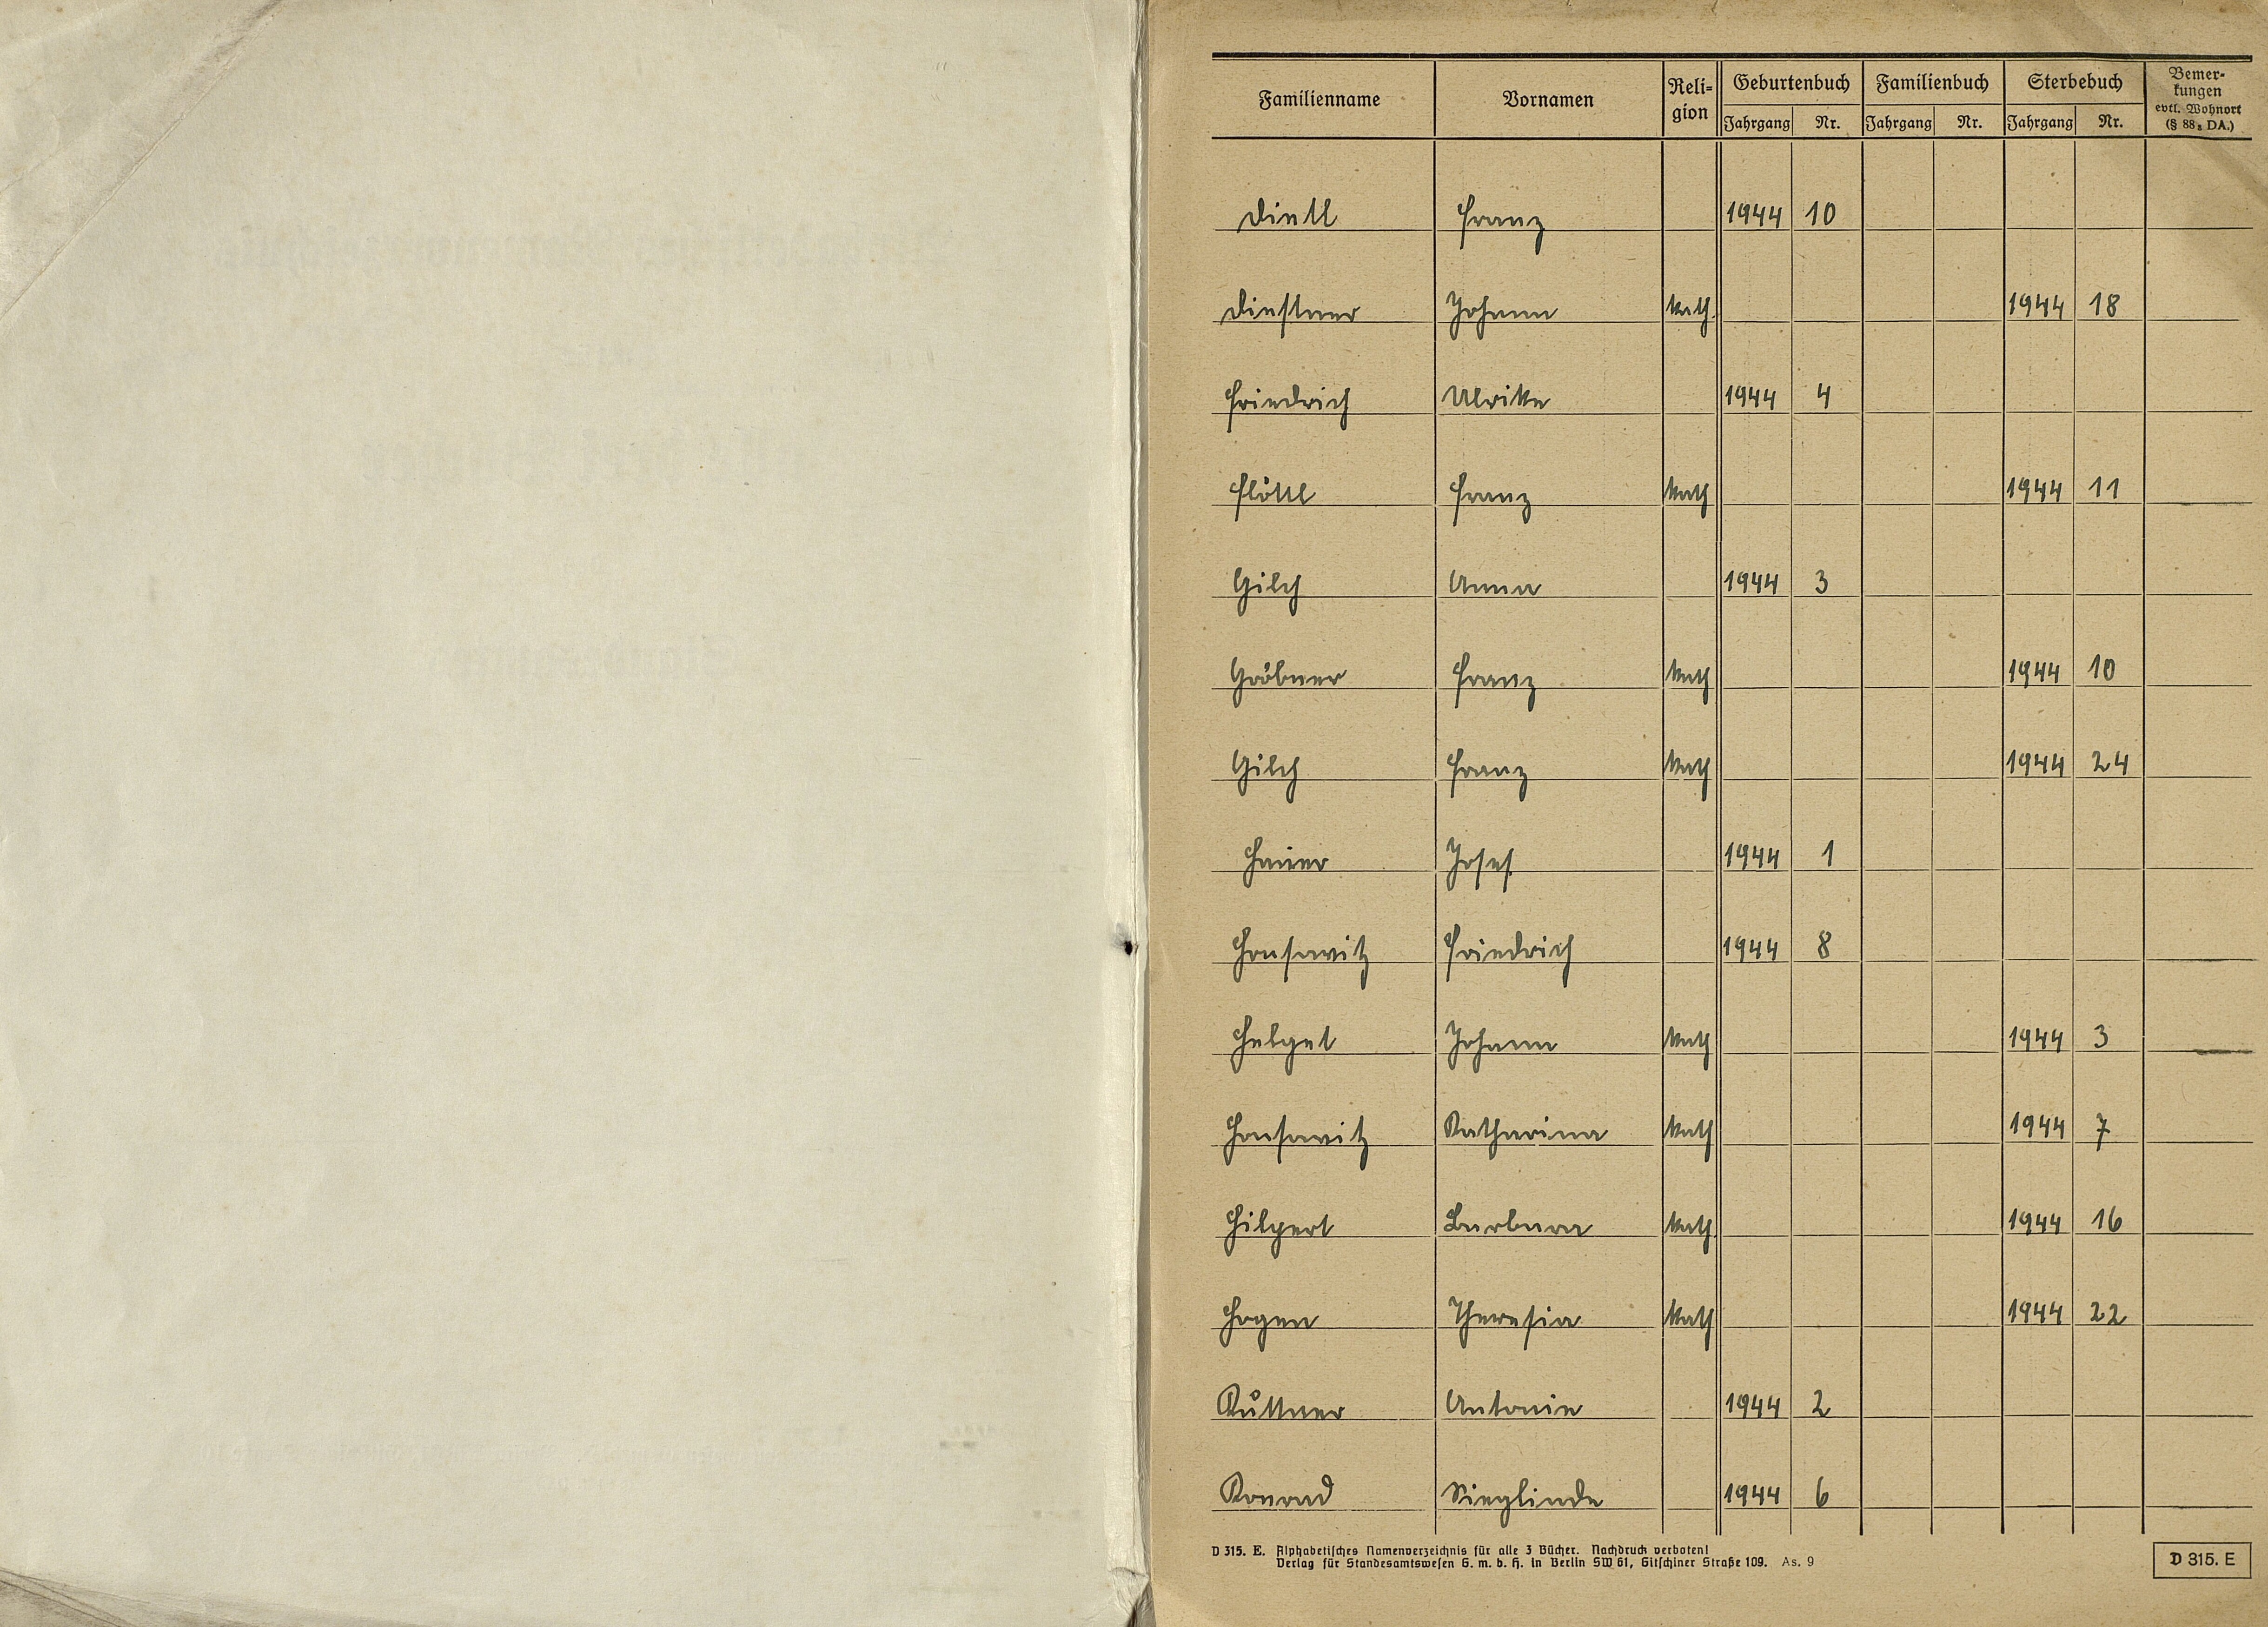 Familienname Vornamen Reli- gion Geburtenbuch Familienbuch Sterbebuch Bemer- kungen evtl. Wohnort (§ 88, DA.)
Jahrgang Nr. Jahrgang Nr. Jahrgang Nr.
Dietl Franz 1944 10
Johann Kath. 1944 18
Friedrich Ulrike 1944 4
Flöttl Franz Kath 1944 11
Gilch Anna 1944 3
Gröbner Franz Kath 1944 10
Gilch Franz Kath 1944 24
Hauer Josef 1944 1
Honsowitz Friedrich 1944 8
Helget Johann Kath 1944 3
Honsowitz Katharina Kath 1944 7
Hilgert Barbara Kath. 1944 16
Hogen Theresia Kath 1944 22
Küttner Antonie 1944 2
Konrad Sieglinde 1944 6
D 315. E. Alphabetisches Namenverzeichnis für alle 3 Bücher. Nachdruck verboten!
Verlag für Standesamtswesen G. m. b. H. in Berlin SW 61, Gitschiner Straße 109. As. 9
D 315. E